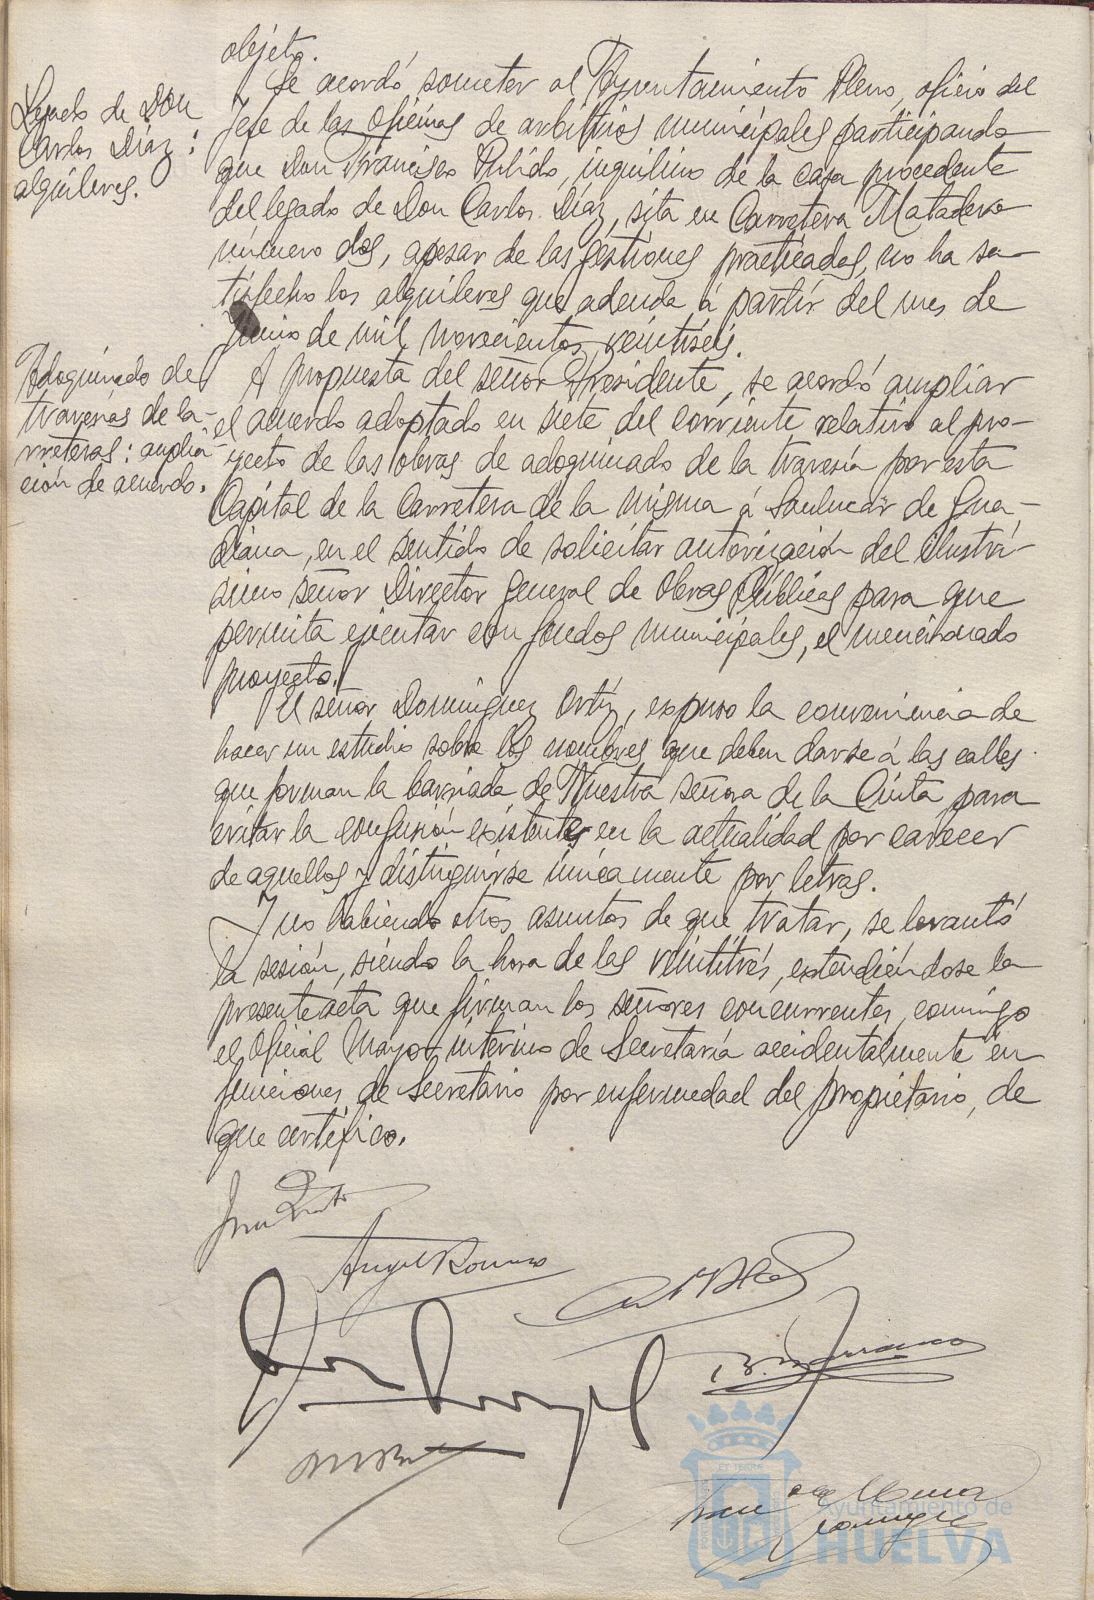 objeto.
Se acordó someter al Ayuntamiento Pleno, oficio del
Legado de Don
Carlos Díaz:
alquileres.
Jefe de las oficinas de arbitrios municipales participando
que Don Francisco Pulido, inquilino de la casa procedente
del legado de Don Carlos Díaz, sita en Carretera Matadero
número dos, apesar de las gestiones practicadas, no ha sa-
tisfecho los alquileres que adeuda á partir del mes de
Junio de mil novecientos veintiséis.
Adoquinado de
travesías de ca-
rreteras: amplia-
ción de acuerdo.
A propuesta del señor Presidente, se acordó ampliar
el acuerdo adoptado en siete del corriente relativo al pro-
yecto de las obras de adoquinado de la travesía por esta
Capital de la Carretera de la misma á Sanlucar de Gua-
diana, en el sentido de solicitar autorización del ilustrí-
simo señor Director General de Obras Públicas para que
permita ejecutar con fondos municipales, el mencionado
proyecto.
El señor Domínguez Ortiz, expuso la conveniencia de
hacer un estudio sobre los nombres que deben darse á las calles
que forman la barriada de Nuestra señora de la Cinta para
evitar la confusión existente en la actualidad por carecer
de aquellos y distinguirse únicamente por letras.
Y no habiendo otros asuntos de que tratar, se levantó
la sesión, siendo la hora de las veintitrés, extendiéndose la
presente acta que firman los señores concurrentes, conmigo
el Oficial Mayor interino de Secretaría accidentalmente en
funciones de Secretario por enfermedad del propietario, de
que certifico.
Angel Romero
Ayuntamiento de
HUELVA